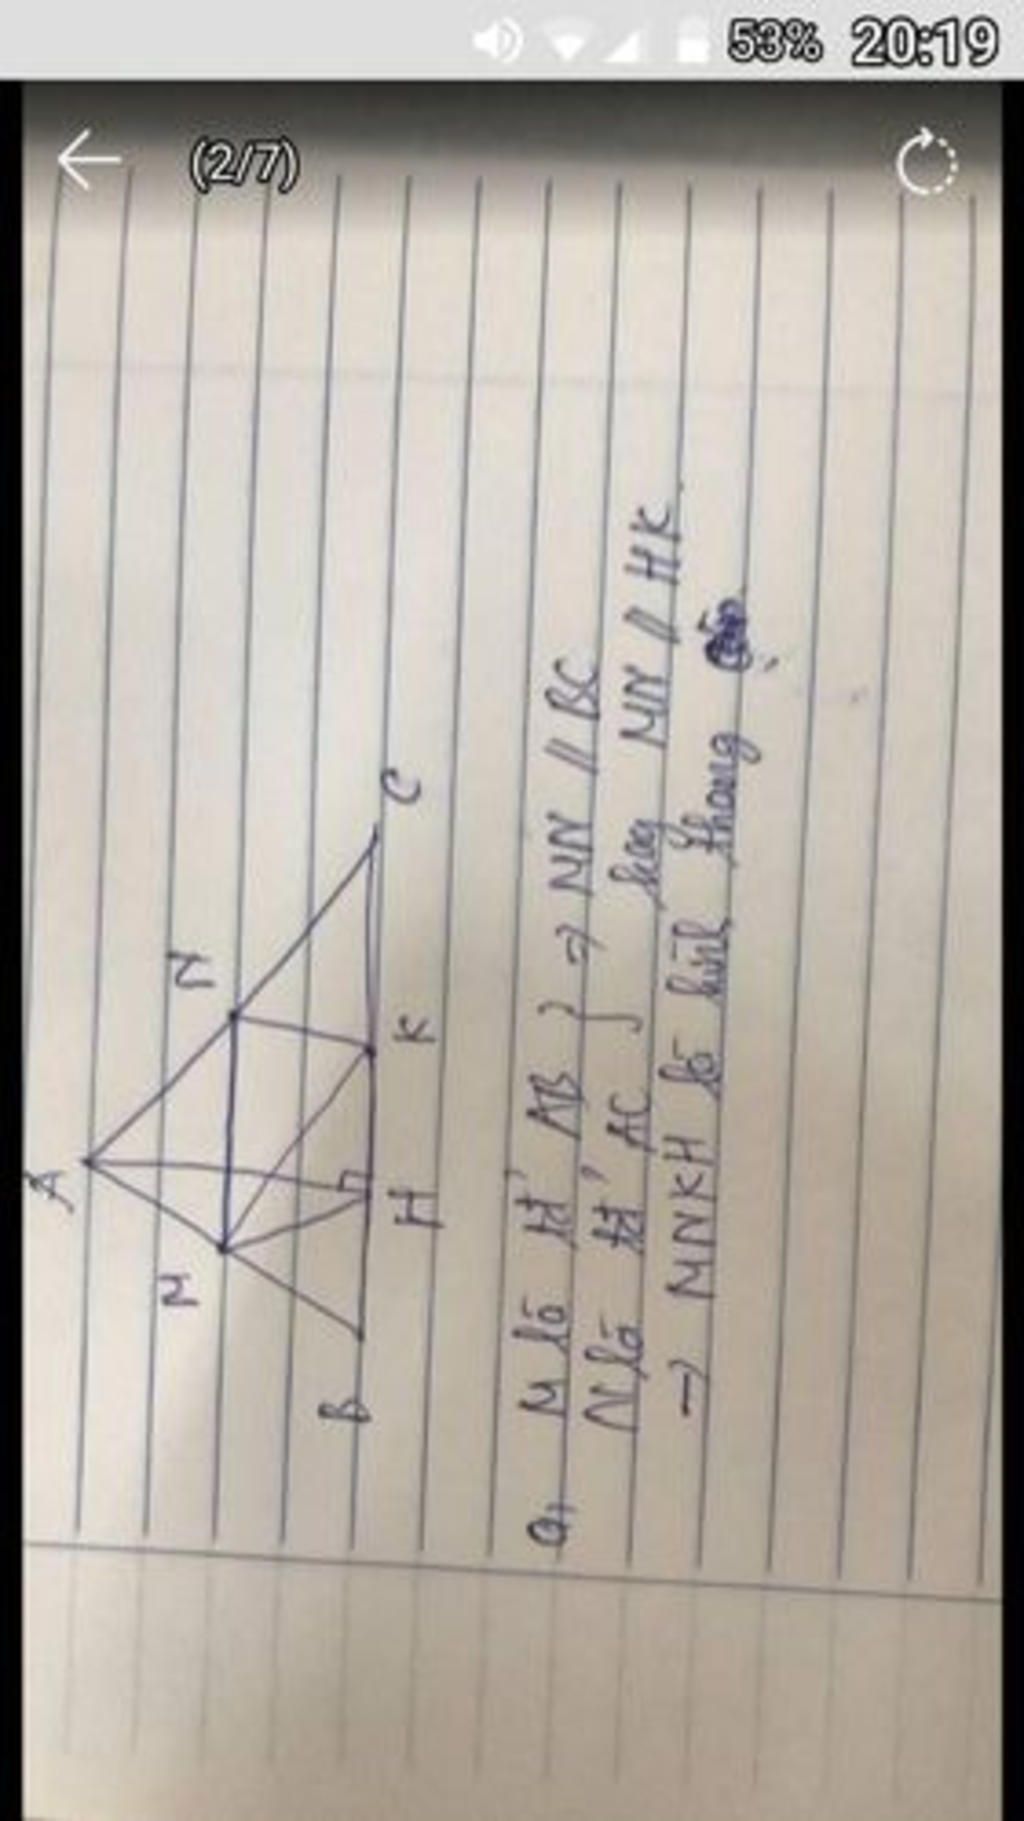 53% 20:19
(2/7)
A
M N
B H K C
a, M là tđ' AB } => MN // BC
N là tđ' AC } hay MN // HK.
-> MNKH là hình thang